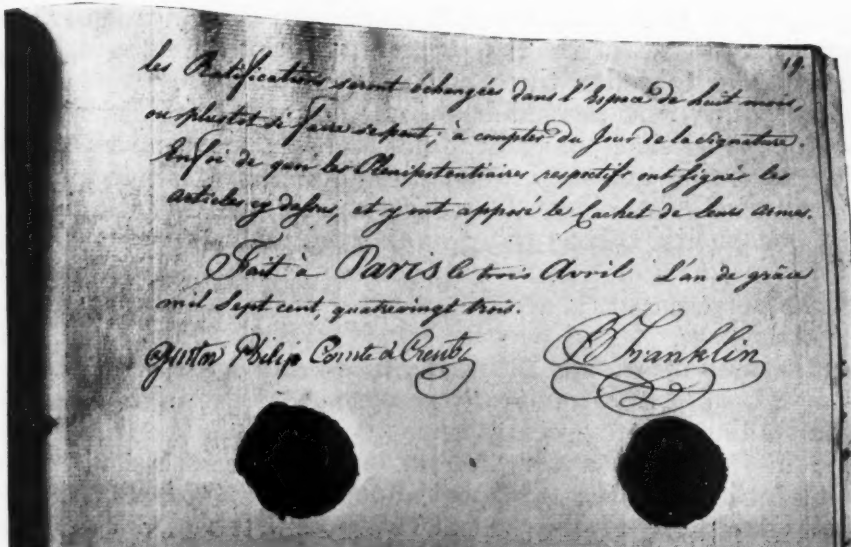 19.
les Ratifications seront échangées dans l'Espace de huit mois,
ou plustot si faire se peut, à compter du Jour de la signature.
En foi de quoi les Plenipotentiaires respectifs ont signés les
articles cy dessus, et y ont apposé le Cachet de leurs armes.
Fait à Paris le trois Avril L'an de grâce
mil Sept cent, quatrevingt trois.
Gustav Philip Comte de Creutz
B Franklin